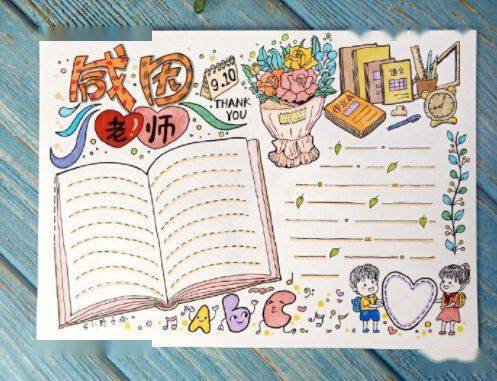 感恩
老师
9.10
THANK
YOU
语文
Abc